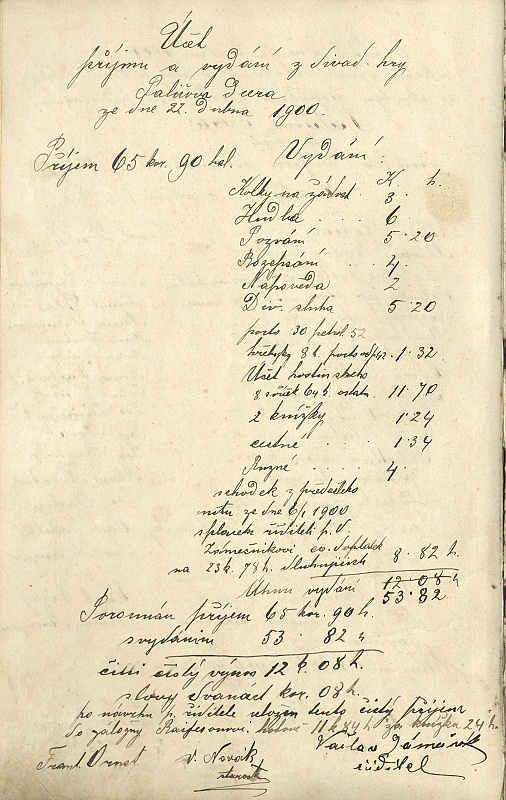 Účet
příjmu a vydání z divad. hry
Paličova Dcera
ze dne 22. dubna 1900.
Příjem 65 kor. 90 hal. Vydání:
K. h.
Kolky na žádost. 3.
Hudba . . . . 6.
Pozvání 5.20
Rozepsání . . . 4.
Nápověda 2.
Div. sluha 5.20
porto 30 petrol. 52
hřebyky 8 h. porto 1.32
Účet hostinského
8 64 h. ostatn. 11.70
2 knížky 1.24
cestné . . . . 1.34
Různé . . . . . 4.
schodek z předešlého
ze dne 6/1 1900
splacen řiditeli p. V.
Zámečníkovi co doplatek
na 23 k. 78 h. dlužných 8.82 h.
12.08 h
Úhrn vydání 53.82
Porovnám příjem 65 kor. 90 h.
s vydáním 53 . 82 "
činí čistý výnos 12 k. 08 h.
slovy Dvanáct kor. 08 h.
po návrhu p. řiditele uložen tento čistý příjem
do záložny Raifeisenovi 11 k 84 h za knížku 24 h.
Frant. Ornst V. Novák Václav Zámečník
starosta řiditel